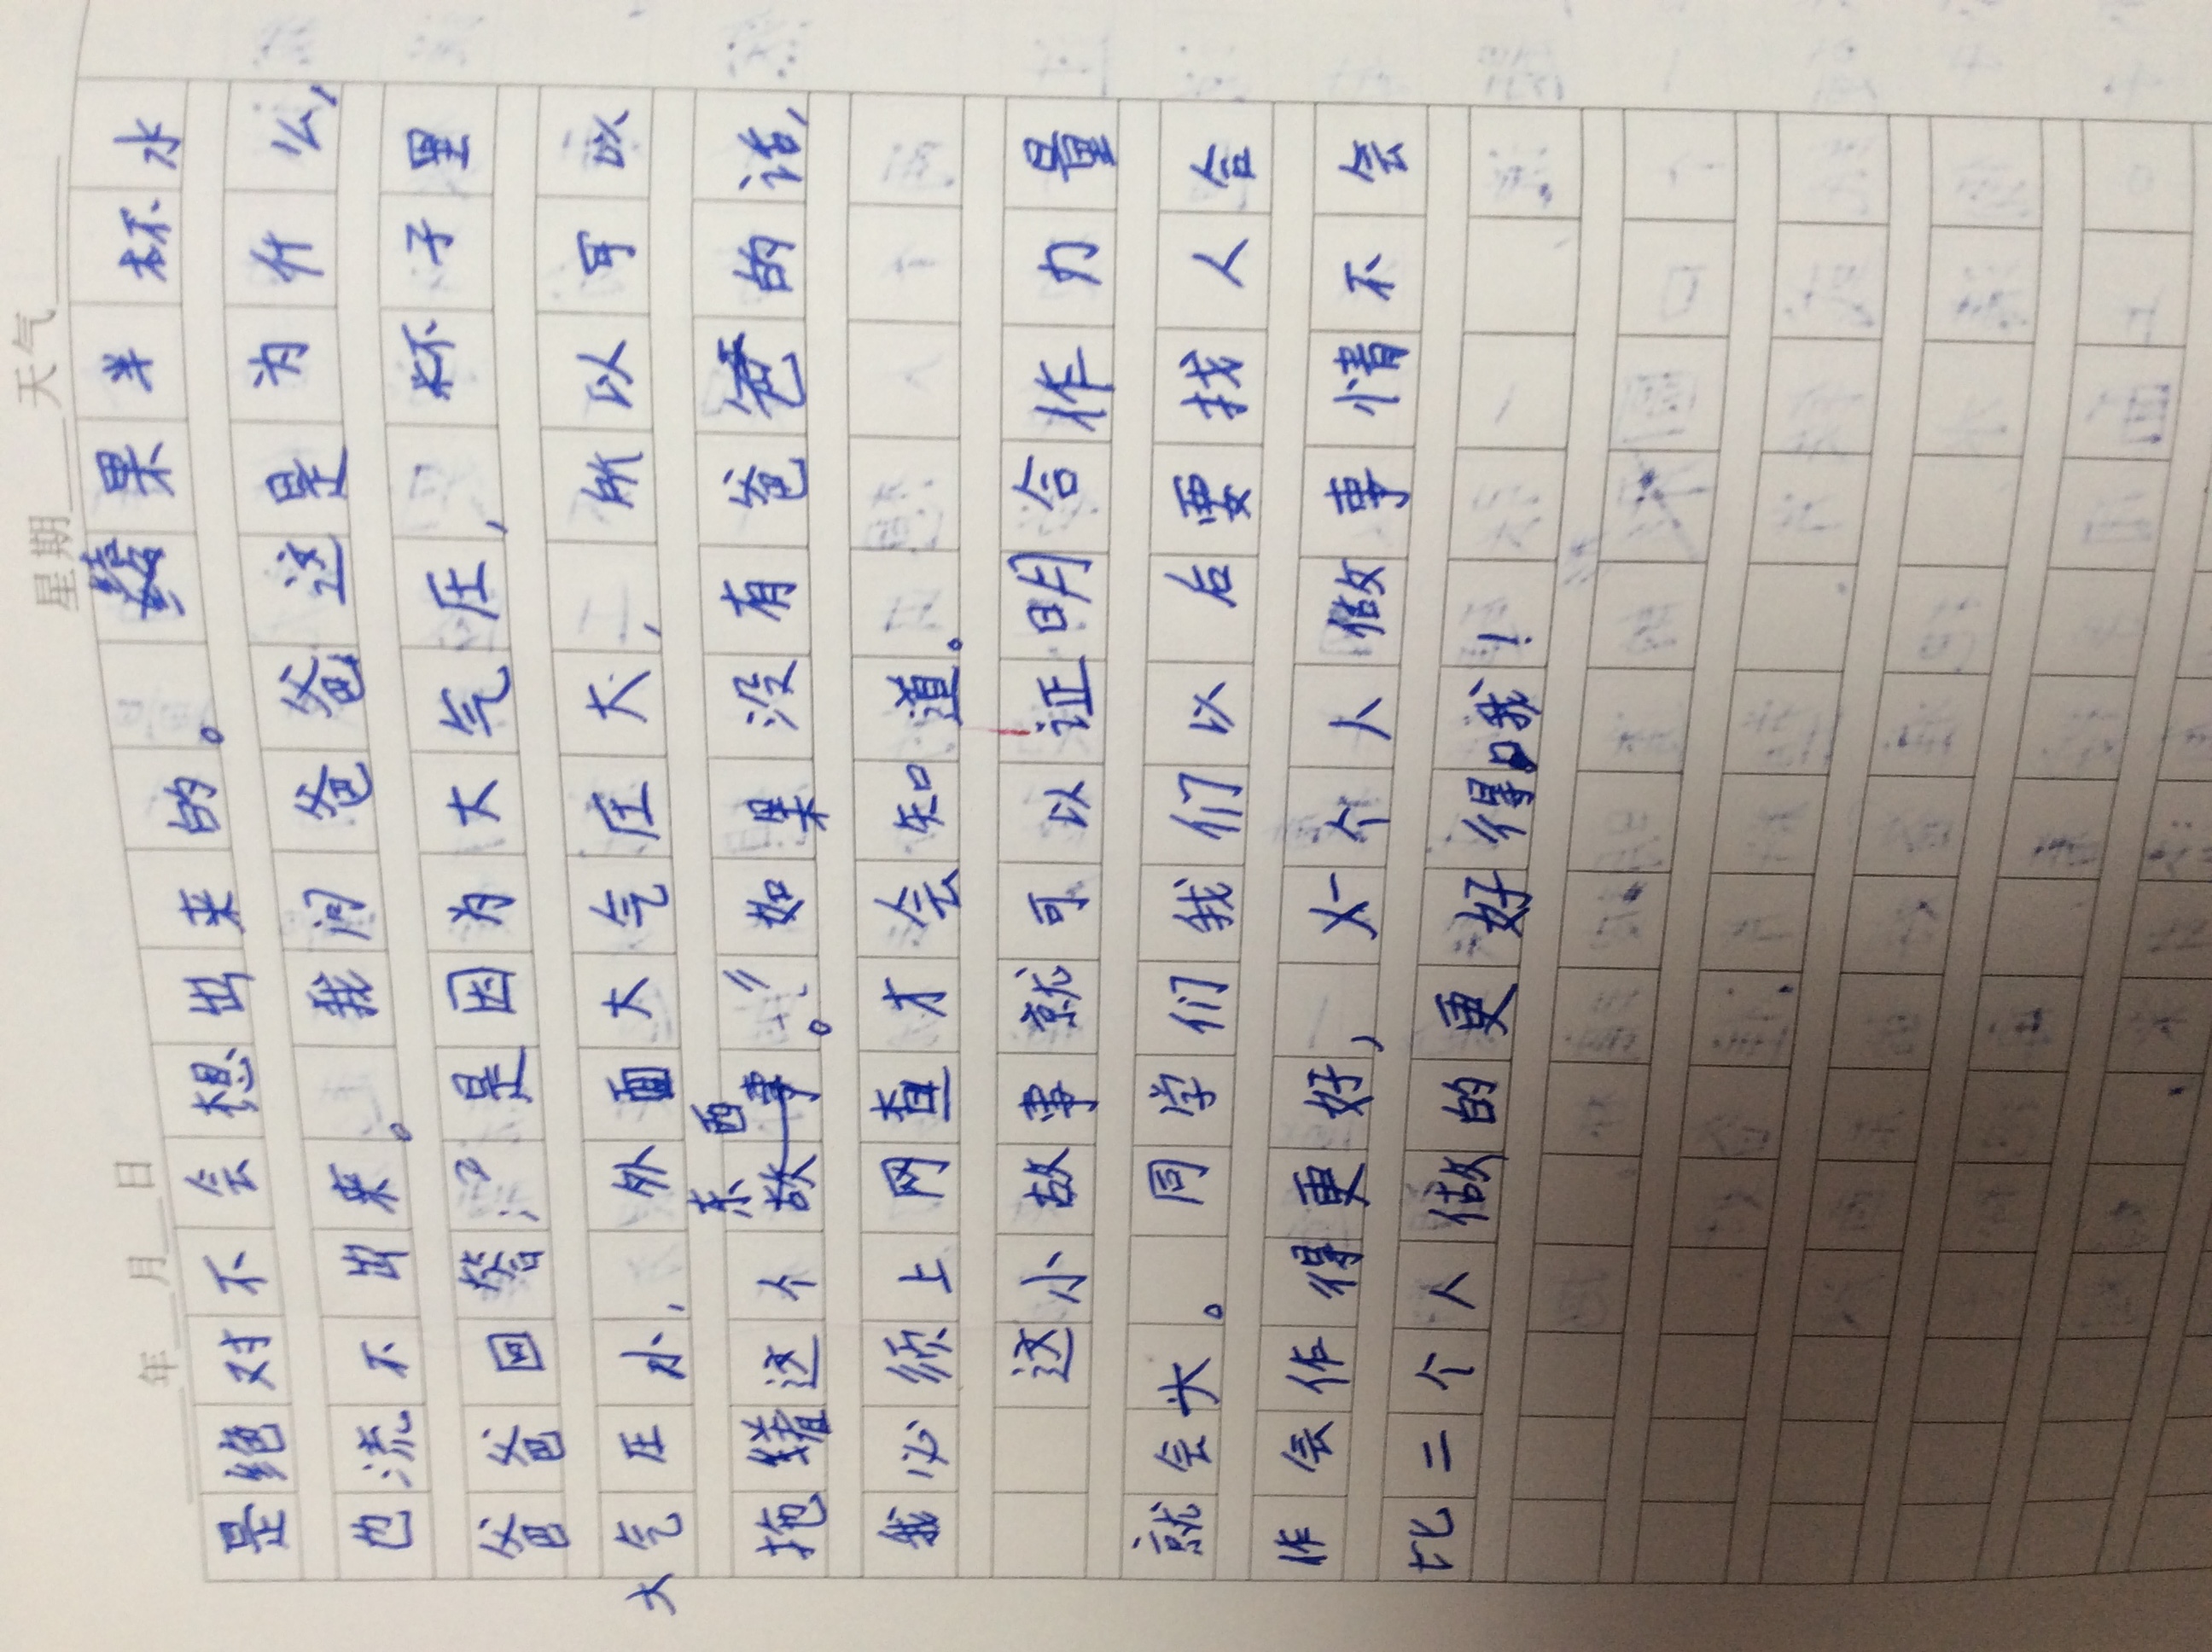 年 月 日 星期 天气
是绝对不会想出来的。果半杯水
也流不出来。我问爸爸这是为什么,
爸爸回答:“是因为大气压,杯子里
大气压小,外面大气压大,所以可以
拖着这个东西。”如果没有爸爸的话,
我必须上网查才会知道。
这小故事就可以证明合作力量
就会大。同学们我们以后要找人合
作会作得更好,一个人做事情不会
比二个人做的更好得哦!